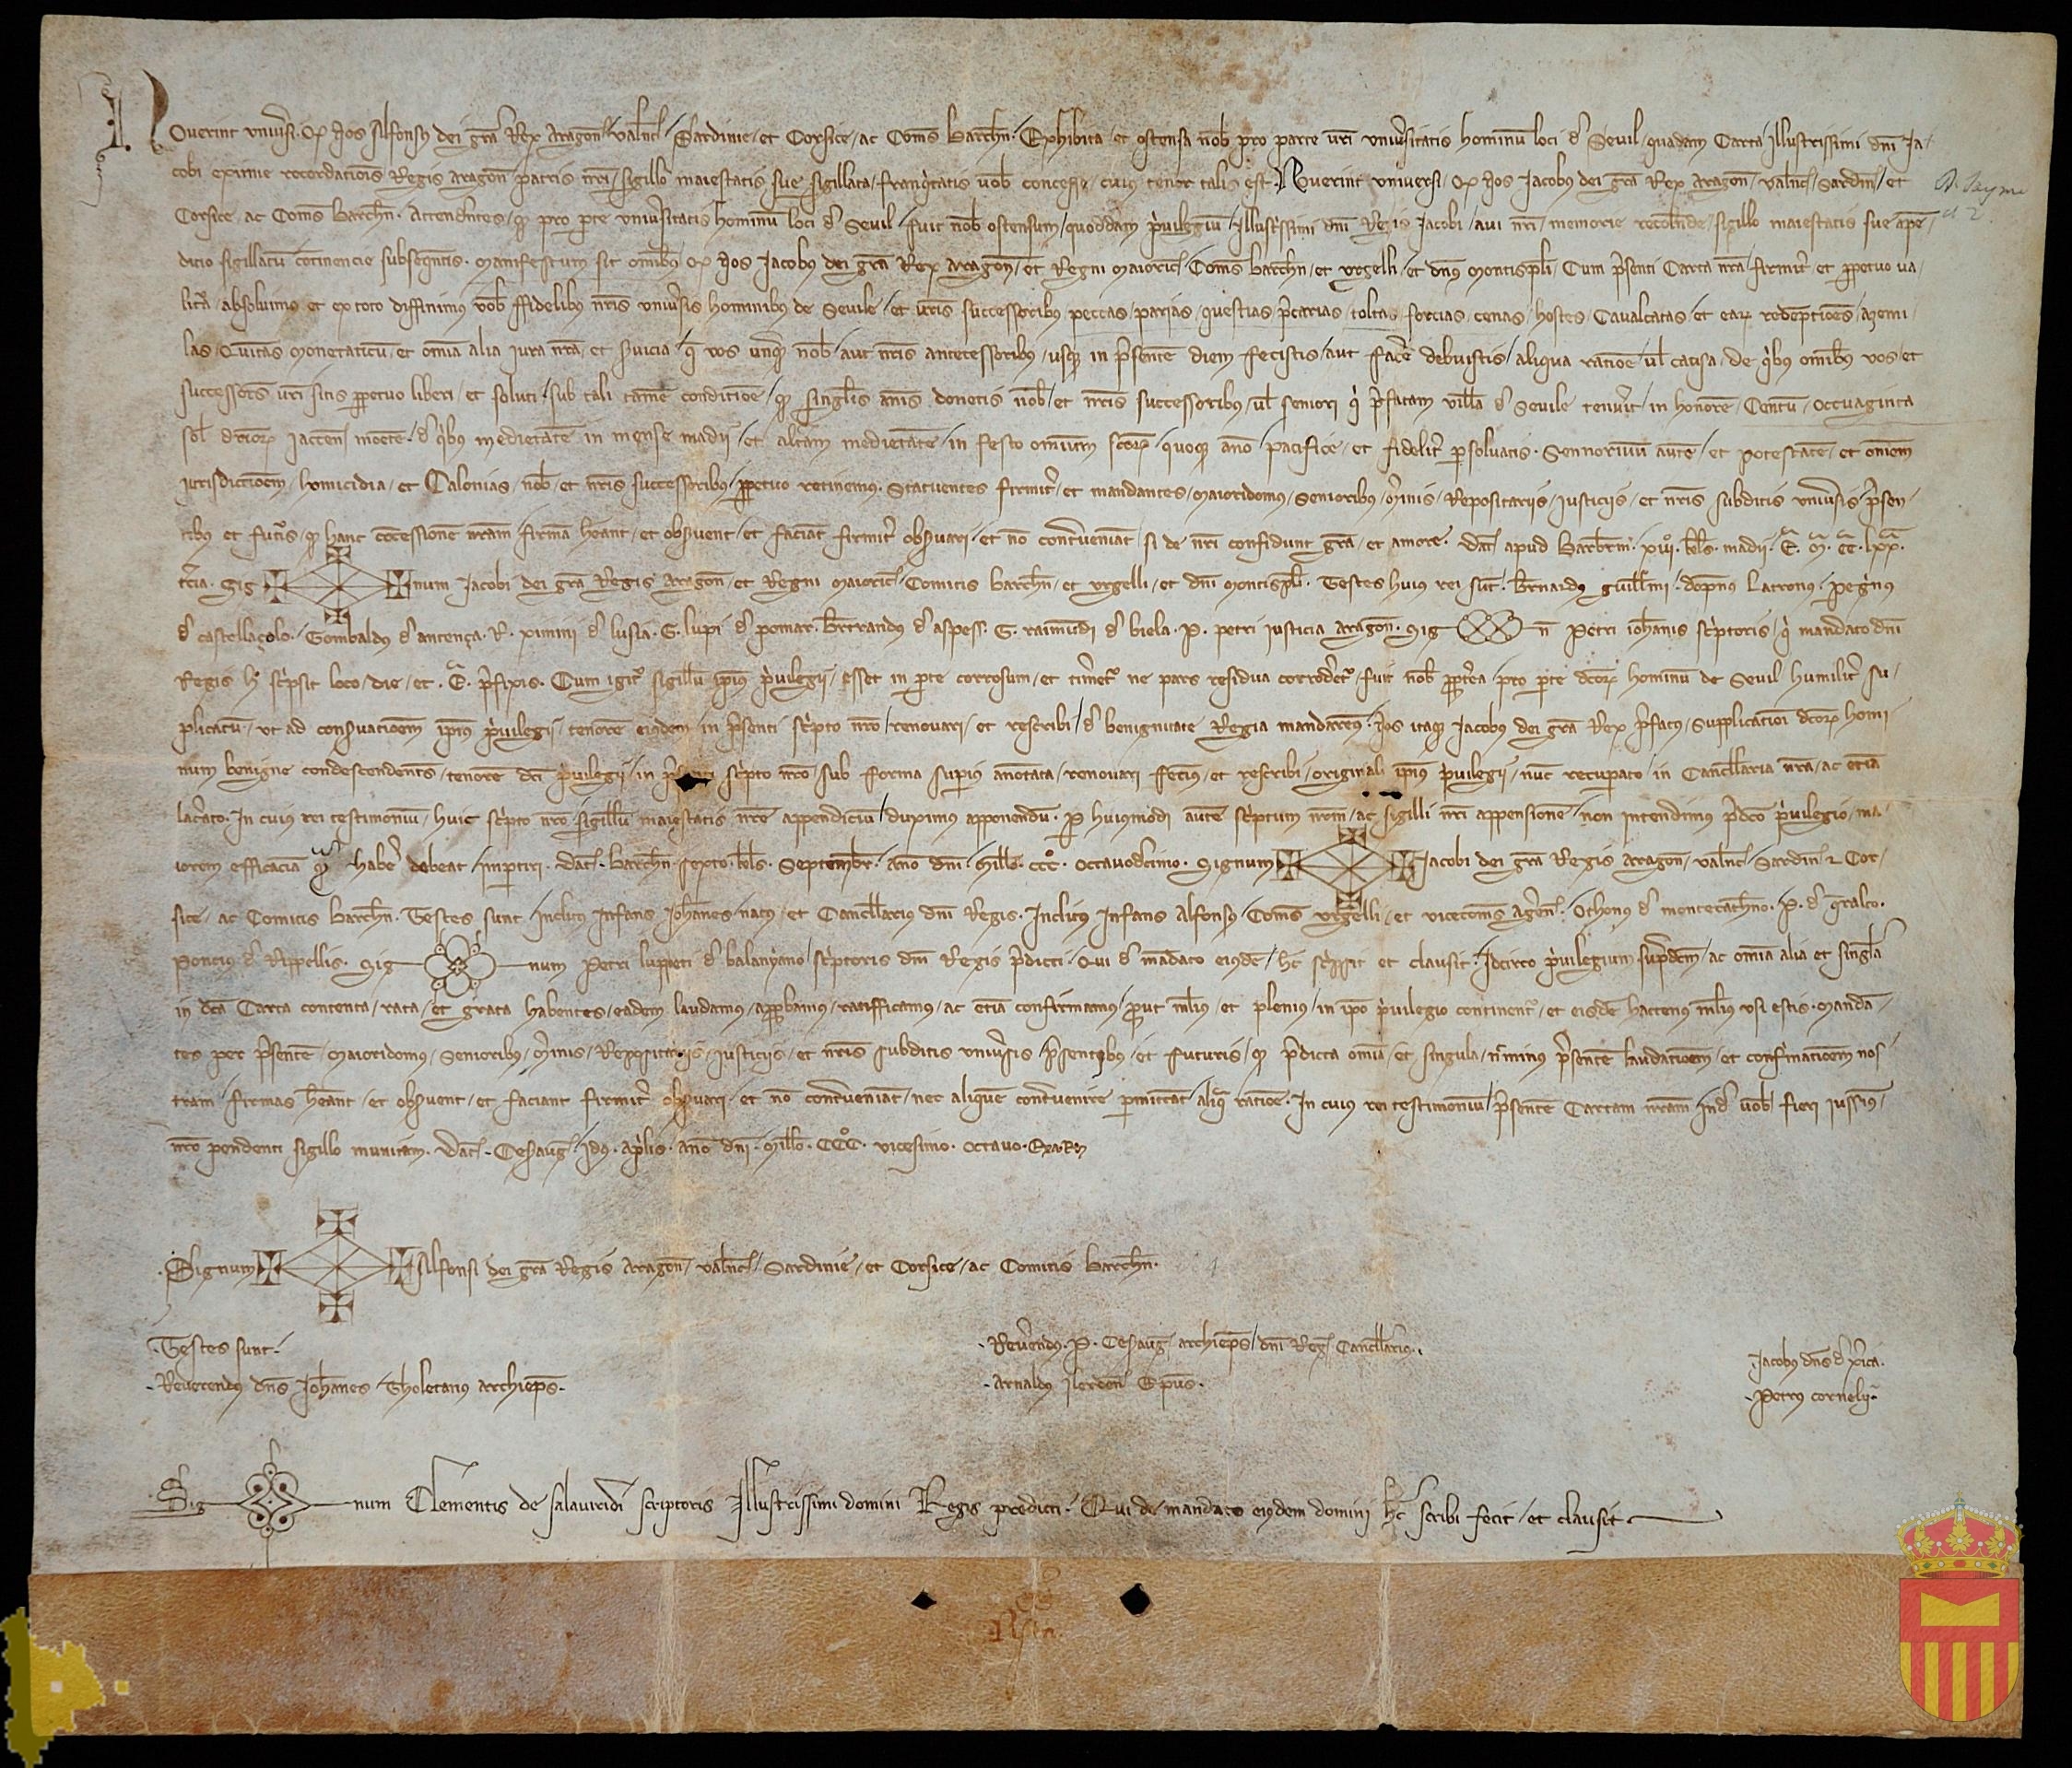 Noverint univ̄si. Qd Nos Alfonsus dei gr̄a Rex Aragon̄. Valenc̄. Sardinie. et Corsice. ac Coms̄ Barchn̄. Exhibita. et ostensa nob̄. pro parte vr̄i univ̄sitatis hominū loci d̄ Sevil. quadam Carta. Illustrissimi dn̄i Ja-
cobi eximie recordatiōis Regis aragon̄ patris nr̄i. sigillo maiestatis sue sigillata. franq̄tatis vob̄ concesse. cuius tenor talis est. Noverint universi. Qd Nos Jacobus dei gr̄a Rex aragon̄. valenc̄. sardin̄. et
Corsice. ac Coms̄ Barchn̄. Attendentes. qd pro pte univ̄sitatis hominū loci d̄ Sevil. fuit nob̄ ostensum. quoddam pvilegiū. Illustrissimi dn̄i Regis Jacobi. avi nr̄i. memorie recolende. sigillo maiestatis sue apē-
dicio sigillatū cōtinencie subseqn̄tis. Manifestum sit omibus qd Nos Jacobus dei gr̄a Rex aragon̄. et Regni maioric̄. Coms̄ barchn̄. et urgelli. et dn̄s montispli. Cum p̄senti Carta nr̄a. firmit̄. et ppetuo va-
litā. absolvimus et ex toto diffinimus vob̄ ffidelibus nr̄is univ̄sis hominibus de Sevile. et vr̄is successoribus. peccas. parias. questias. p̄carias. toltas. forcias. cenas. hostes. Cavalcatas. et eaꝝ redēptiōes. azemi-
las. Quītas monetaticū. et omīa alia iura nr̄a. et sr̄vicia. q̄ vos unq̄ nob̄ aut nr̄is antecessoribus. usq̄ in p̄sentē diem fecistis. aut facē debuistis. aliqua ratiōe. ul̄ causa. de qibus omībus vos. et
successores vr̄i sitis ppetuo liberi. et soluti. sub tali tamē conditiōe. qd singlis anis donetis nob̄. et nr̄is successoribus. ul̄ seniori qi p̄fatam villā d̄ Sevile tenuit̄ in honorē. Centū. Octuaginta
sol̄. dr̄ioꝝ Jaccen̄. monete. d̄ qibus medietatē in mense madii. et altam medietatē in festo omium scoꝝ. quoq̄ ano. pacifice. et fidelit̄ psolvatis. Sennoriuū autē. et potestatē. et omēm
iurisdictiōem. homicidia. et Calonias. nob̄. et nr̄is successoribus. ppetuo retinemus. Statuentes firmit̄. et mandantes. maioridomus. senioribus. m̄inis. Repositariis. iusticiis. et nr̄is subditis univ̄sis. p̄sen-
tibus et futis. qd hanc cōcessionē nr̄am firmā heant. et obsvent. et faciāt firmit̄ obsvari. et nō contraveniāt. si de nr̄i confidunt gr̄a. et amore. Dat̄. apud Barbrm̄. xvi. kls. madii. E. M. CC. Lxx.
tcia. Sig num Jacobi dei gr̄a Regis aragon̄. et Regni maioric̄. Comitis barchn̄. et urgelli. et dn̄i montispli. Testes huius rei sūt. Bernardus guillmi. dompnus Latronus. pegrinus
d̄ castellaçolo. Gombaldus d̄ antença. R. ximini d̄ lusia. G. lupi d̄ pomar. Bertrandus d̄ aspess. G. raimudi d̄ biela. P. petri iusticia aragon̄. Sig n̄ Petri iohanis sciptoris. qi mandato dn̄i
Regis h̄ scipsit loco. die. et. E. p̄fixis. Cum igit̄ sigillū ipius pvilegii. esset in pte corrosum. et timet̄ ne pars residua corrodet̄. fuit nob̄ pptea. pro pte dcoꝝ hominū de Sevil humilit̄ su-
plicatū. ut ad consvatiōem ipius pvilegii. tenorē eiusdem in p̄senti scipto nr̄o. renovari. et rescribi. d̄ benignitate Regia mandarem. Nos itaq̄ Jacobus dei gr̄a Rex p̄fatus. supplicatiōi dcoꝝ homi-
num benigne condescendentes. tenorē dci pvilegii. in p̄senti scipto nr̄o. sub forma supius anotata. renovari fecim. et rescribi. originali ipius pvilegii. nūc recupato in Cancellaria nr̄a. ac etiā
lacato. In cuius rei testimoniū. huic scipto nr̄o. sigillū maiestatis nr̄e appendiciū duximus apponendū. P huiusmodi autē sciptum nr̄m. ac sigilli nr̄i appensionē. non intendimus p̄dco pvilegio. ma-
iorem efficaciā q̄ habē debeat. imptiri. Dat̄. Barchn̄. sexto. kls. Septembr̄. Ano dn̄i. Mill̄o. CCC. octavodecimo. Signum Jacobi dei gr̄a Regis aragon̄. valenc̄. Sardin̄. & Cor-
sice. ac Comitis Barchn̄. Testes sunt. Inclitus Infans Johanes. natus. et Cancellarius dn̄i Regis. Inclitus Infans Alfonsus. Coms̄ urgelli. et vicecoms̄ agen̄. Othonus d̄ montecathno. P. d̄ qralto.
Poncius d̄ Rippellis. Sig num Petri luppeti d̄ balanyano. sciptoris dn̄i Regis p̄dicti. Qui d̄ mādato eiusdē. hc̄ scipsit et clausit. Idcirco pvilegium supdcm̄. ac omīa alia et singla
in dcā Carta contenta. rata. et grata habentes. eadem laudamus. appbamus. ratifficamus. ac etiā confirmamus. prout meli. et plenius. in ipo pvilegio continent̄. et eisdē hactenus meli usi estis. Mandā-
tes per p̄sentē. Maioridomus. Senioribus. m̄inis. Repositariis. Iusticiis. et nr̄is subditis univ̄sis. p̄sentibus. et futuris. qd p̄dicta omīa. et singula. p̄sentē laudatiōem. et confirmatiōem nos-
tram. firmas heant. et obsvent. et faciant firmit̄ obsvari. et nō contraveniāt. nec aliquē contravenire pmittāt aliq̄ ratiōe. In cuius rei testimoniū p̄sentē Cartam nr̄am Ind̄ vob̄ fieri iussim.
nr̄o pendenti sigillo munitam. Dat̄. Cesaug̃. Idus. aplis. ano dn̄i. Mill̄o. CCC. vicesimo. octavo.
Signum Alfonsi dei gr̄a Regis Aragon̄. valenc̄. Sardinie. et Corsice. ac Comitis Barchn̄.
Testes sunt.
Reverendus dn̄s Johanes Tholetanus archieps̄.
Reverendus. P. Cesaug̃. archieps̄. dn̄i Reg̃. Cancellarius.
Arnaldus Ilerden̄ Eps̄.
Jacobus dn̄s d̄ xerica.
Petrus cornelii.
Sig num Clementis de salaviridi scriptoris Illustrissimi domini Regis predicti. Qui de mandato eiusdem domini hc̄ scribi fecit. et clausit.